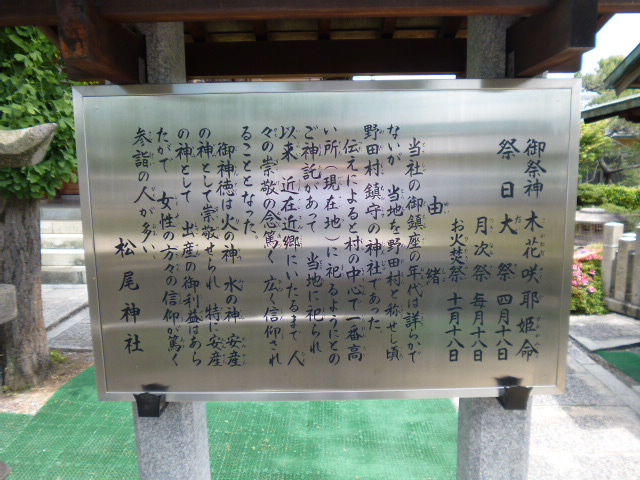 御祭神 木花咲耶姫命
祭日 大祭 四月十八日
月次祭 毎月十八日
お火焚祭 十月十八日
由緒
当社の御鎮座の年代は詳らかで
ないが 当地を野田村と称せし頃
野田村鎮守の神社であった
伝えによると村の中心で一番高
い所(現在地)に祀るようにとの
ご神託があって 当地に祀られ
以来 近在近郷にいたるまで 人
々の崇敬の念篤く 広く信仰され
ることとなった。
御神徳は火の神 水の神 安産
の神として崇敬せられ 特に安産
の神として 出産の御利益はあら
たかで 女性の方々の信仰が篤く
参詣の人が多い
松尾神社